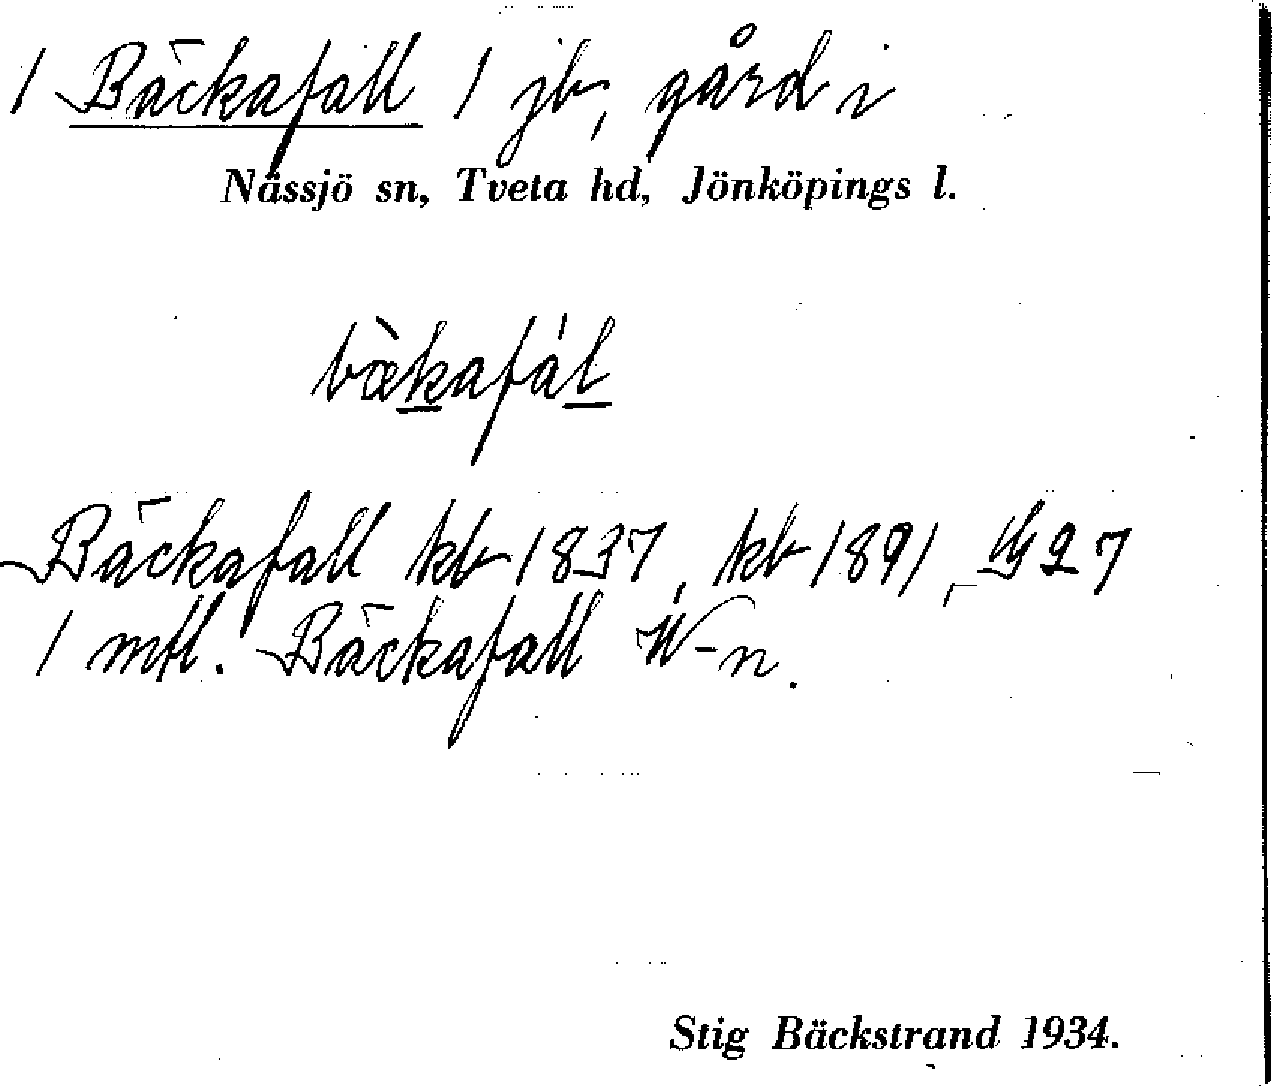 1 Bäckafall 1 jb, gård i
Nässjö sn, Tveta hd, Jönköpings l.
bæ̀kafál
Bäckafall kb 1837, kb 1891, 27
1 mtl. Bäckafall W-n.
Stig Bäckstrand 1934.